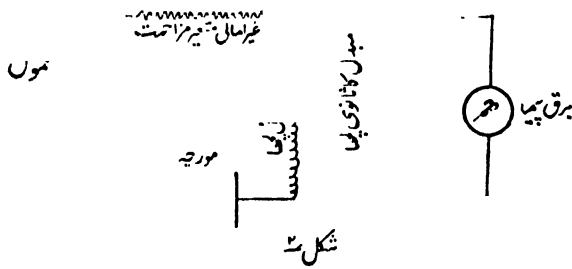 غیرامالی متغیر مزاحمت
موں
مبدل کا ثانوی لچھا
برق پیما
لچھا
مورچہ
شکل ۲